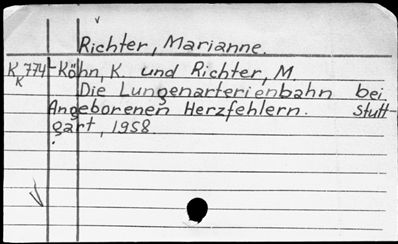 Richter, Marianne.
Kk774 Köhn, K. und Richter, M.
Die Lungenarterienbahn bei
Angeborenen Herzfehlern. Stutt-
gart, 1958.